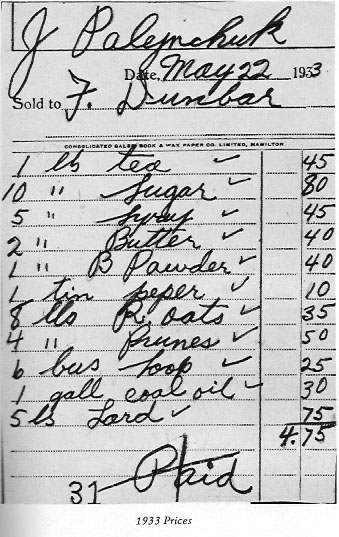 J Palejnchuk
Date, May 22 1933
Sold to F. Dunbar
CONSOLIDATED SALES BOOK & WAX PAPER CO. LIMITED, HAMILTON
1 lb tea ✓ 45
10 " sugar ✓ 80
5 " syrup ✓ 45
2 " Butter ✓ 40
1 " B Pawder ✓ 40
1 tin peper ✓ 10
8 lbs R. oats ✓ 35
4 " Prunes ✓ 50
6 bus soop ✓ 25
1 gall coal oil ✓ 30
5 lbs Lard ✓ 75
4.75
Paid
31
1933 Prices